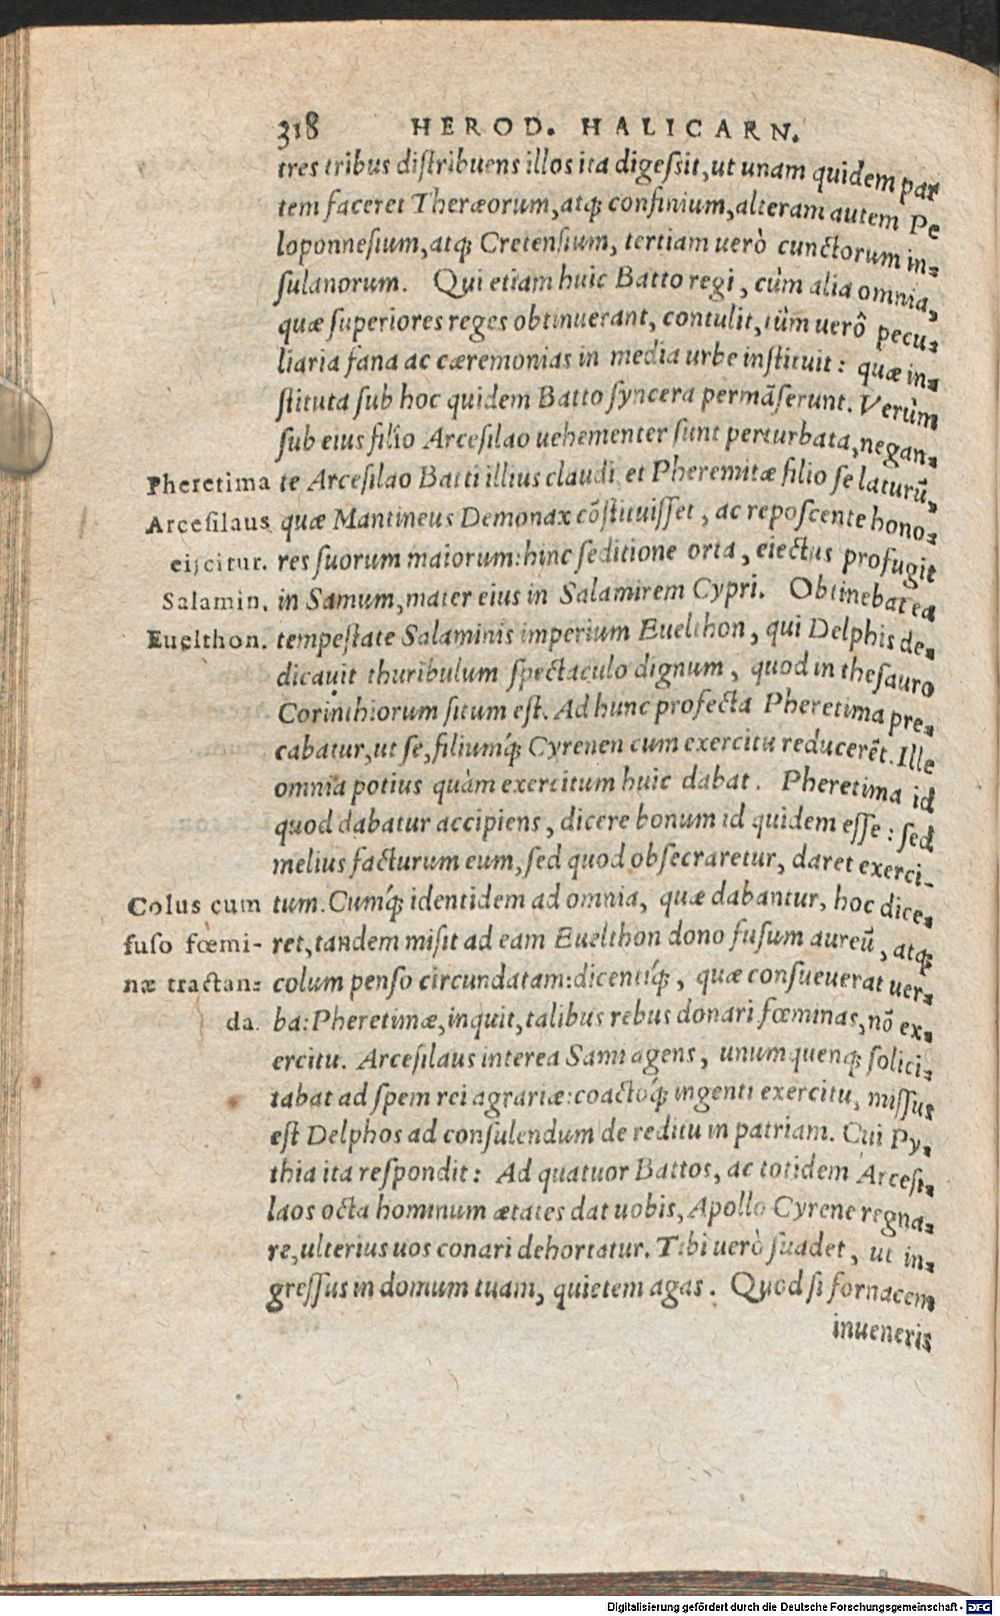 318 HEROD. HALICARN.
tres tribus distribuens illos ita digessit, ut unam quidem par
tem faceret Theræorum, atq; confinium, alteram autem Pe
loponnesium, atq; Cretensium, tertiam uerò cunctorum in-
sulanorum. Qui etiam huic Batto regi, cùm alia omnia,
quæ superiores reges obtinuerant, contulit, tùm uerô pecu-
liaria fana ac cæremonias in media urbe instituit: quæ in-
stituta sub hoc quidem Batto syncera permãserunt. Verùm
sub eius filio Arcesilao uehementer sunt perturbata, negan-
Pheretima te Arcesilao Batti illius claudi et Pheremitæ filio se laturũ,
Arcesilaus quæ Mantineus Demonax cõstituisset, ac reposcente hono-
eijcitur. res suorum maiorum: hinc seditione orta, eiectus profugit
Salamin. in Samum, mater eius in Salamirem Cypri. Obtinebat ea
Euelthon. tempestate Salaminis imperium Euelthon, qui Delphis de-
dicauit thuribulum spectaculo dignum, quod in thesauro
Corinthiorum situm est. Ad hunc profecta Pheretima pre-
cabatur, ut se, filiumq́; Cyrenen cum exercitu reducerẽt. Ille
omnia potius quàm exercitum huic dabat. Pheretima id
quod dabatur accipiens, dicere bonum id quidem esse: sed
melius facturum eum, sed quod obsecraretur, daret exerci-
Colus cum tum. Cumq́; identidem ad omnia, quæ dabantur, hoc dice-
fuso fœmi- ret, tandem misit ad eam Euelthon dono fusum aureũ, atq;
næ tractan- colum penso circundatam: dicentiq́;, quæ consueuerat uer-
da. ba: Pheretimæ, inquit, talibus rebus donari fœminas, nõ ex-
ercitu. Arcesilaus interea Sami agens, unum quenq; solici-
tabat ad spem rei agrariæ: coactoq́; ingenti exercitu, missus
est Delphos ad consulendum de reditu in patriam. Cui Py-
thia ita respondit: Ad quatuor Battos, ac totidem Arcesi-
laos octa hominum ætates dat uobis, Apollo Cyrene regna-
re, ulterius uos conari dehortatur. Tibi uerò suadet, ut in-
gressus in domum tuam, quietem agas. Quod si fornacem
inueneris
Digitalisierung gefördert durch die Deutsche Forschungsgemeinschaft - DFG